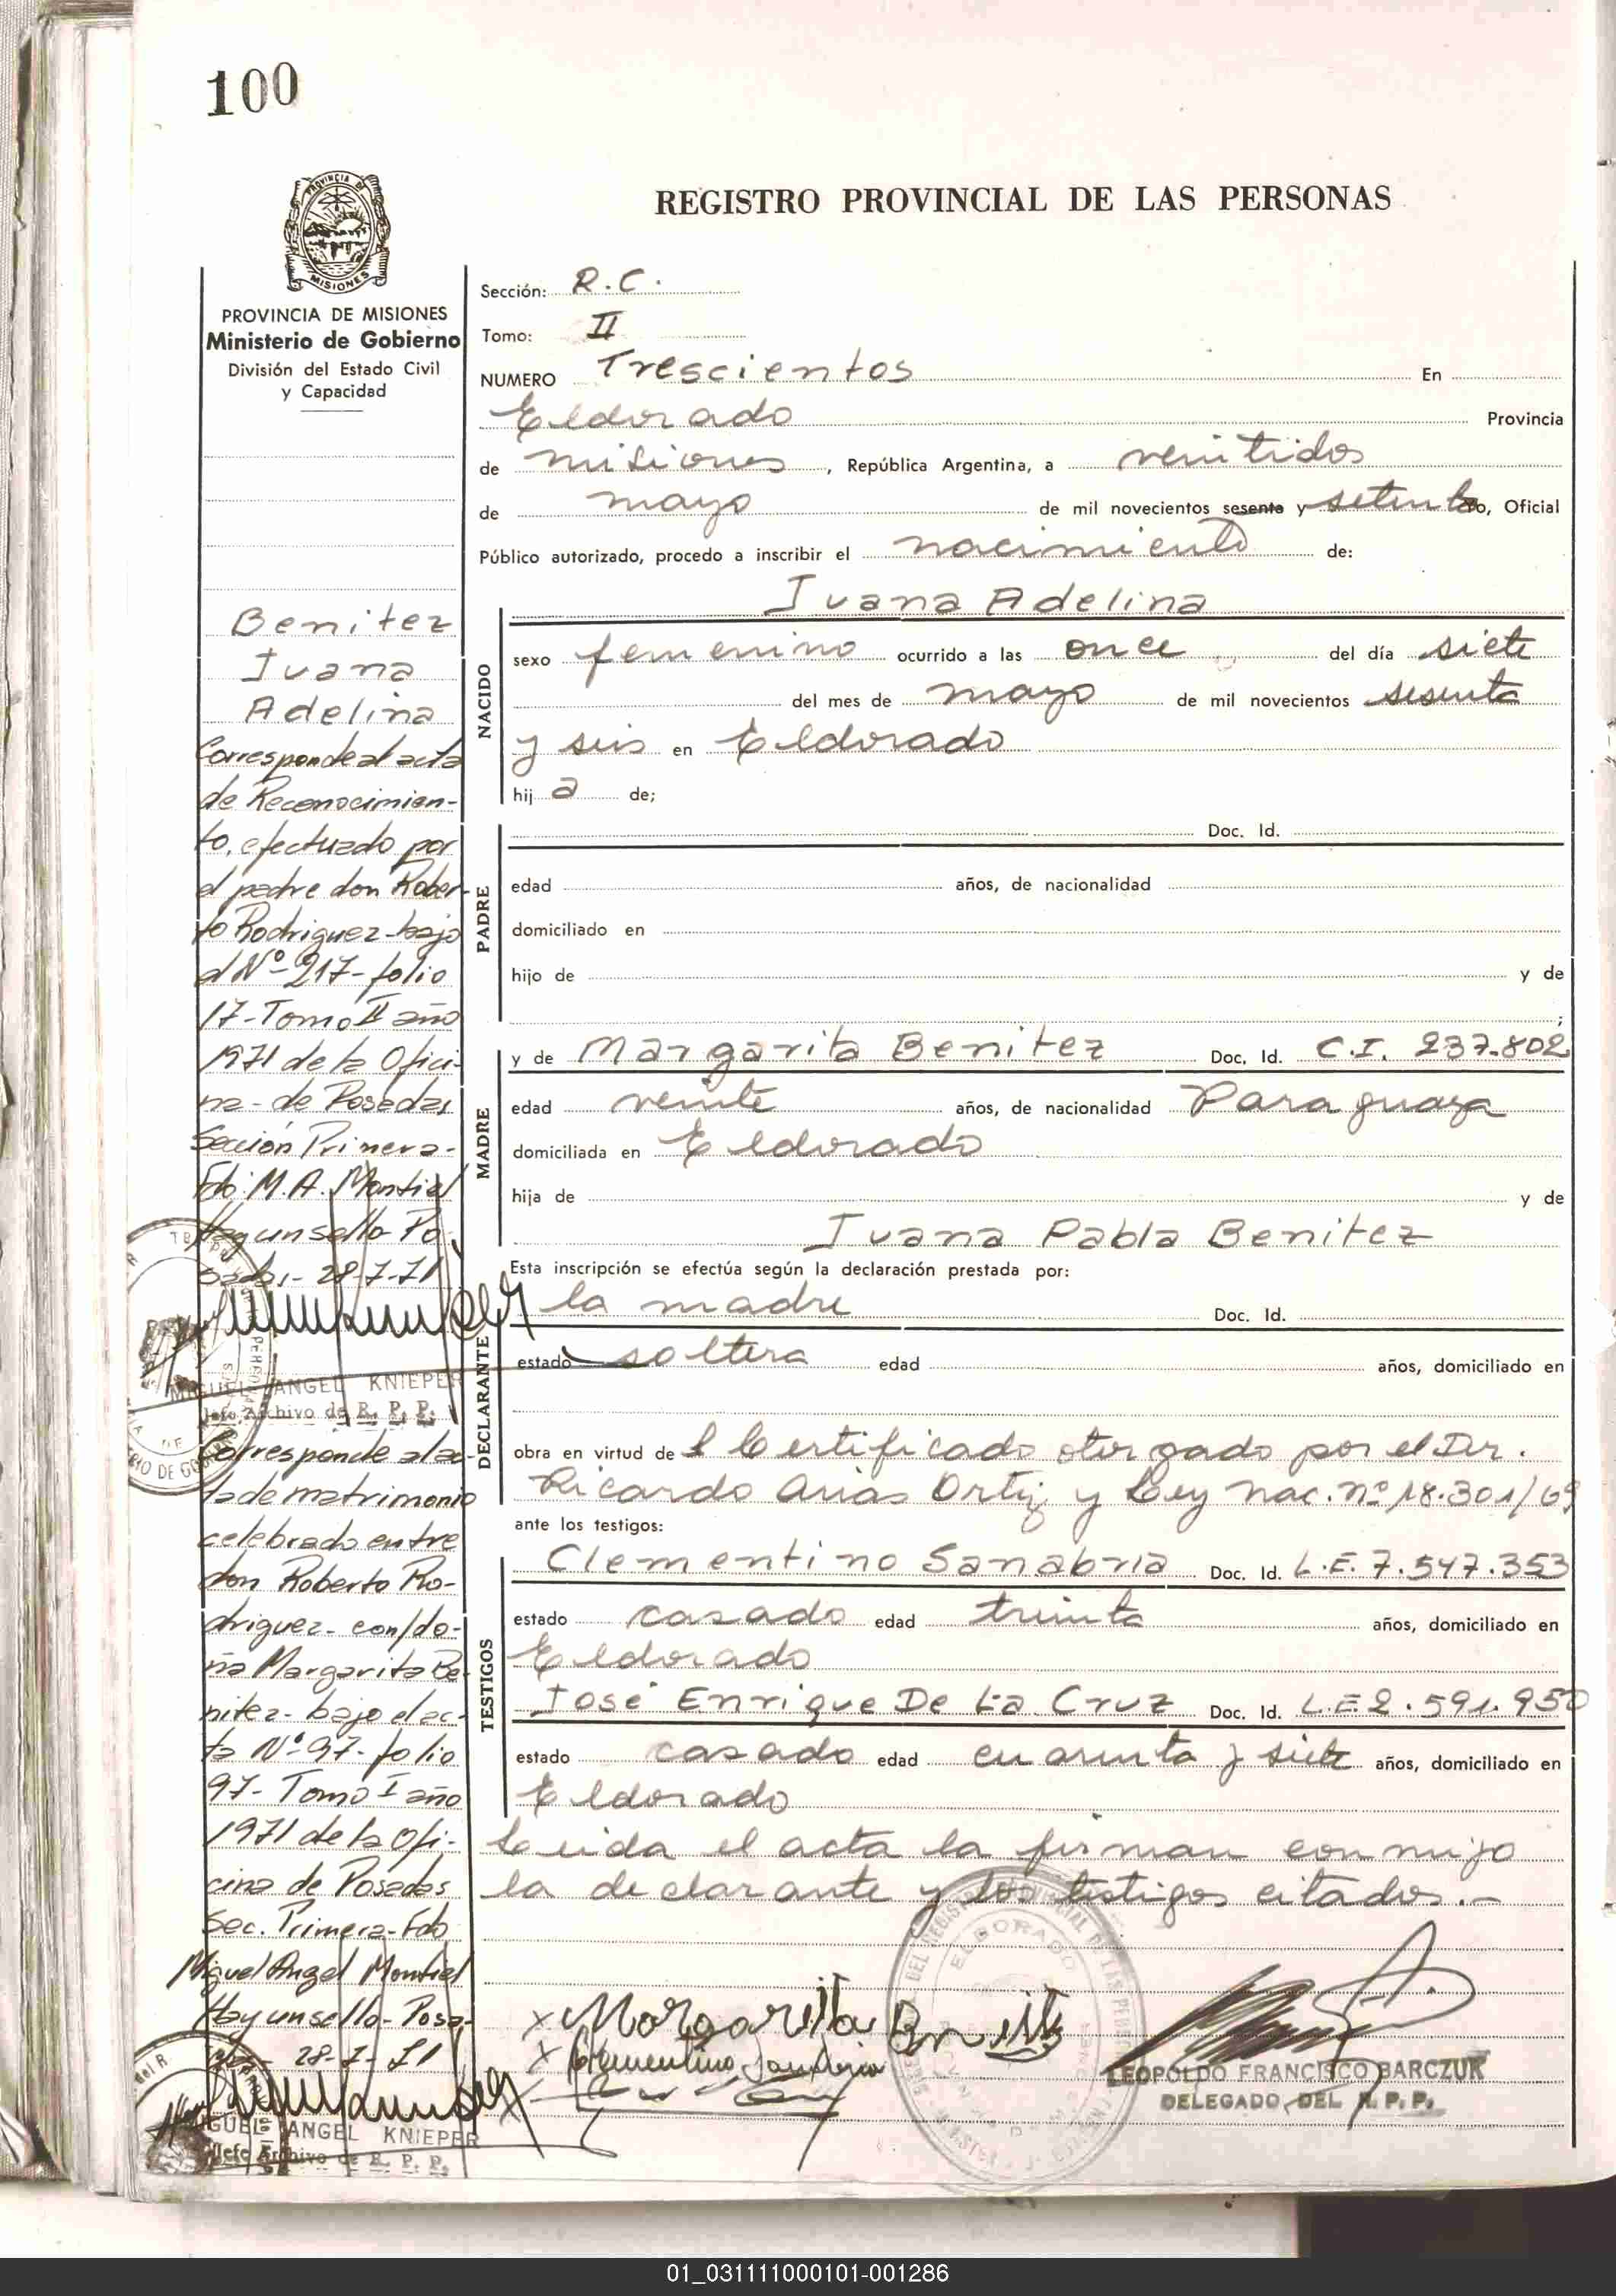 100
PROVINCIA DE
MISIONES
REGISTRO PROVINCIAL DE LAS PERSONAS
PROVINCIA DE MISIONES
Ministerio de Gobierno
División del Estado Civil
y Capacidad
Benitez
Juana
Adelina
Corresponde al acta
de Reconocimien-
to, efectuado por
el padre don Rober-
to Rodriguez - bajo
el Nº 217 - folio
17 - Tomo II año
1971 de la Ofici-
na - de Posadas
Sección Primera -
Fdo: M.A. Montiel
Hay un sello - Po-
sadas - 28-7-71
MIGUEL ANGEL KNIEPER
Jefe Archivo de R. P. P.
Corresponde al ac-
ta de matrimonio
celebrado entre
don Roberto Ro-
driguez - con/do-
ña Margarita Be-
nitez - bajo el ac-
ta Nº 97 - folio
97 - Tomo I año
1971 de la Ofi-
cina de Posadas
Sec. Primera - Fdo
Miguel Angel Montiel
Hay un sello - Posa-
28-7-71
MIGUEL ANGEL KNIEPER
Jefe Archivo de R. P. P.
Sección: R.C.
Tomo: II
NUMERO Trescientos En
Eldorado Provincia
de misiones, República Argentina, a veintidos
de mayo de mil novecientos sesenta y setenta yo, Oficial
Público autorizado, procedo a inscribir el nacimiento de:
Juana Adelina
NACIDO
sexo femenino ocurrido a las once del día siete
del mes de mayo de mil novecientos sesenta
y seis en Eldorado
hij a de;
PADRE
Doc. Id.
edad años, de nacionalidad
domiciliado en
hijo de y de
;
MADRE
y de Margarita Benitez Doc. Id. C.I. 237.802
edad veinte años, de nacionalidad Paraguaya
domiciliada en Eldorado
hija de y de
Juana Pabla Benitez
Esta inscripción se efectúa según la declaración prestada por:
DECLARANTE
la madre Doc. Id.
estado soltera edad años, domiciliado en
obra en virtud de l Certificado otorgado por el Dr.
Ricardo Arias Ortiz y Ley Nac. nº 18.301/69
ante los testigos:
TESTIGOS
Clementino Sanabria Doc. Id. L.E. 7.547.353
estado casado edad treinta años, domiciliado en
Eldorado
José Enrique De La Cruz Doc. Id. L.E. 2.591.950
estado casado edad cuarenta y siete años, domiciliado en
Eldorado
Leida el acta la firman conmigo
la declarante y los testigos citados.-
x Margarita Benitez
x Clementino Sanabria
x
ELDORADO
LEOPOLDO FRANCISCO BARCZUK
DELEGADO DEL R. P. P.
01_031111000101-001286